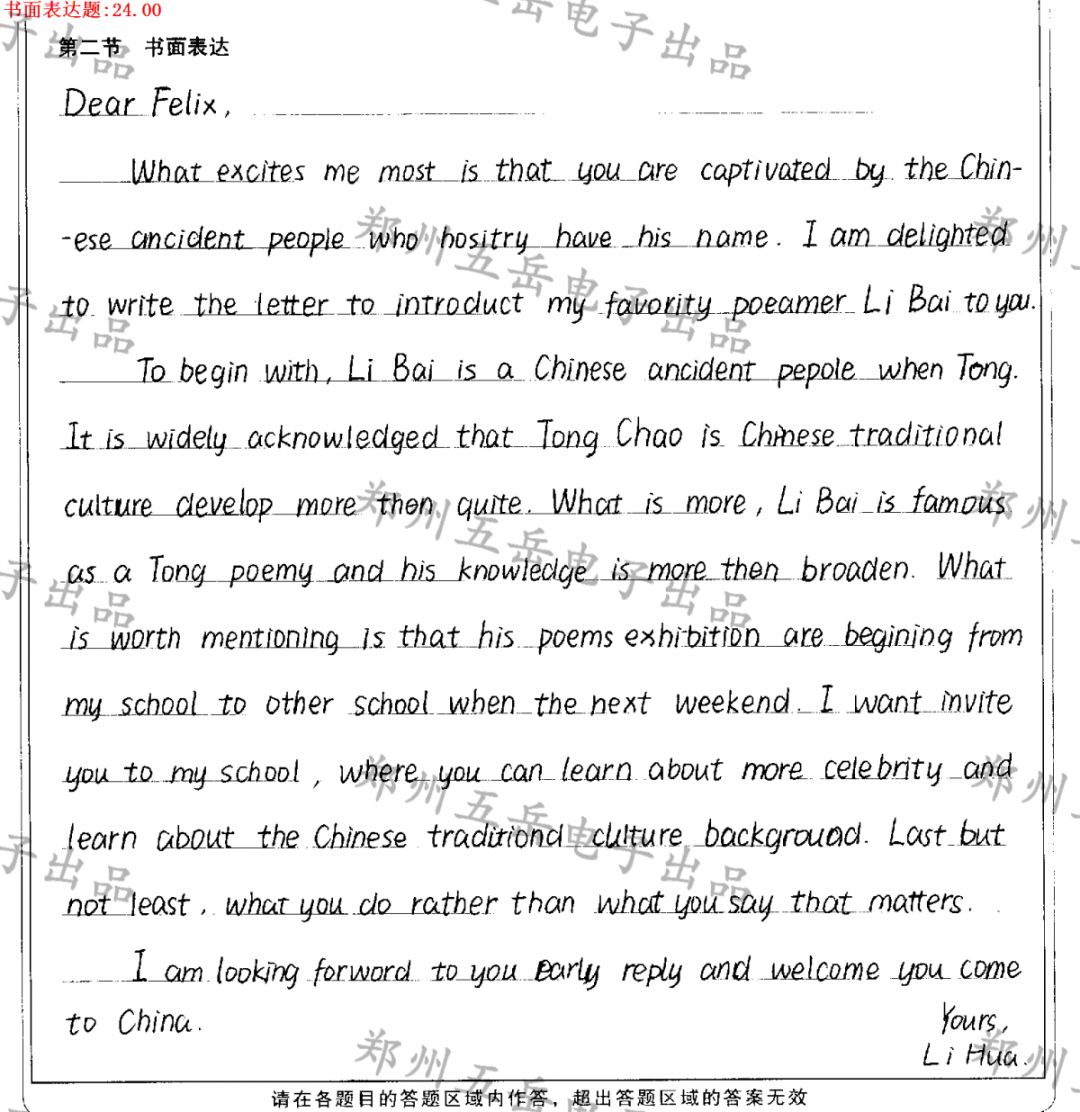 书面表达题:24.00
第二节 书面表达
Dear Felix,
What excites me most is that you are captivated by the Chin-
-ese ancident people who hositry have his name. I am delighted
to write the letter to introduct my favority poeamer Li Bai to you.
To begin with, Li Bai is a Chinese ancident pepole when Tong.
It is widely acknowledged that Tong Chao is Chinese traditional
culture develop more then quite. What is more, Li Bai is famous
as a Tong poemy and his knowledge is more then broaden. What
is worth mentioning is that his poems exhibition are begining from
my school to other school when the next weekend. I want invite
you to my school, where you can learn about more celebrity and
learn about the Chinese traditiond culture background. Last but
not least, what you do rather than what you say that matters.
I am looking forword to you early reply and welcome you come
to China.
Yours,
Li Hua.
请在各题目的答题区域内作答，超出答题区域的答案无效
郑州五岳电子出品